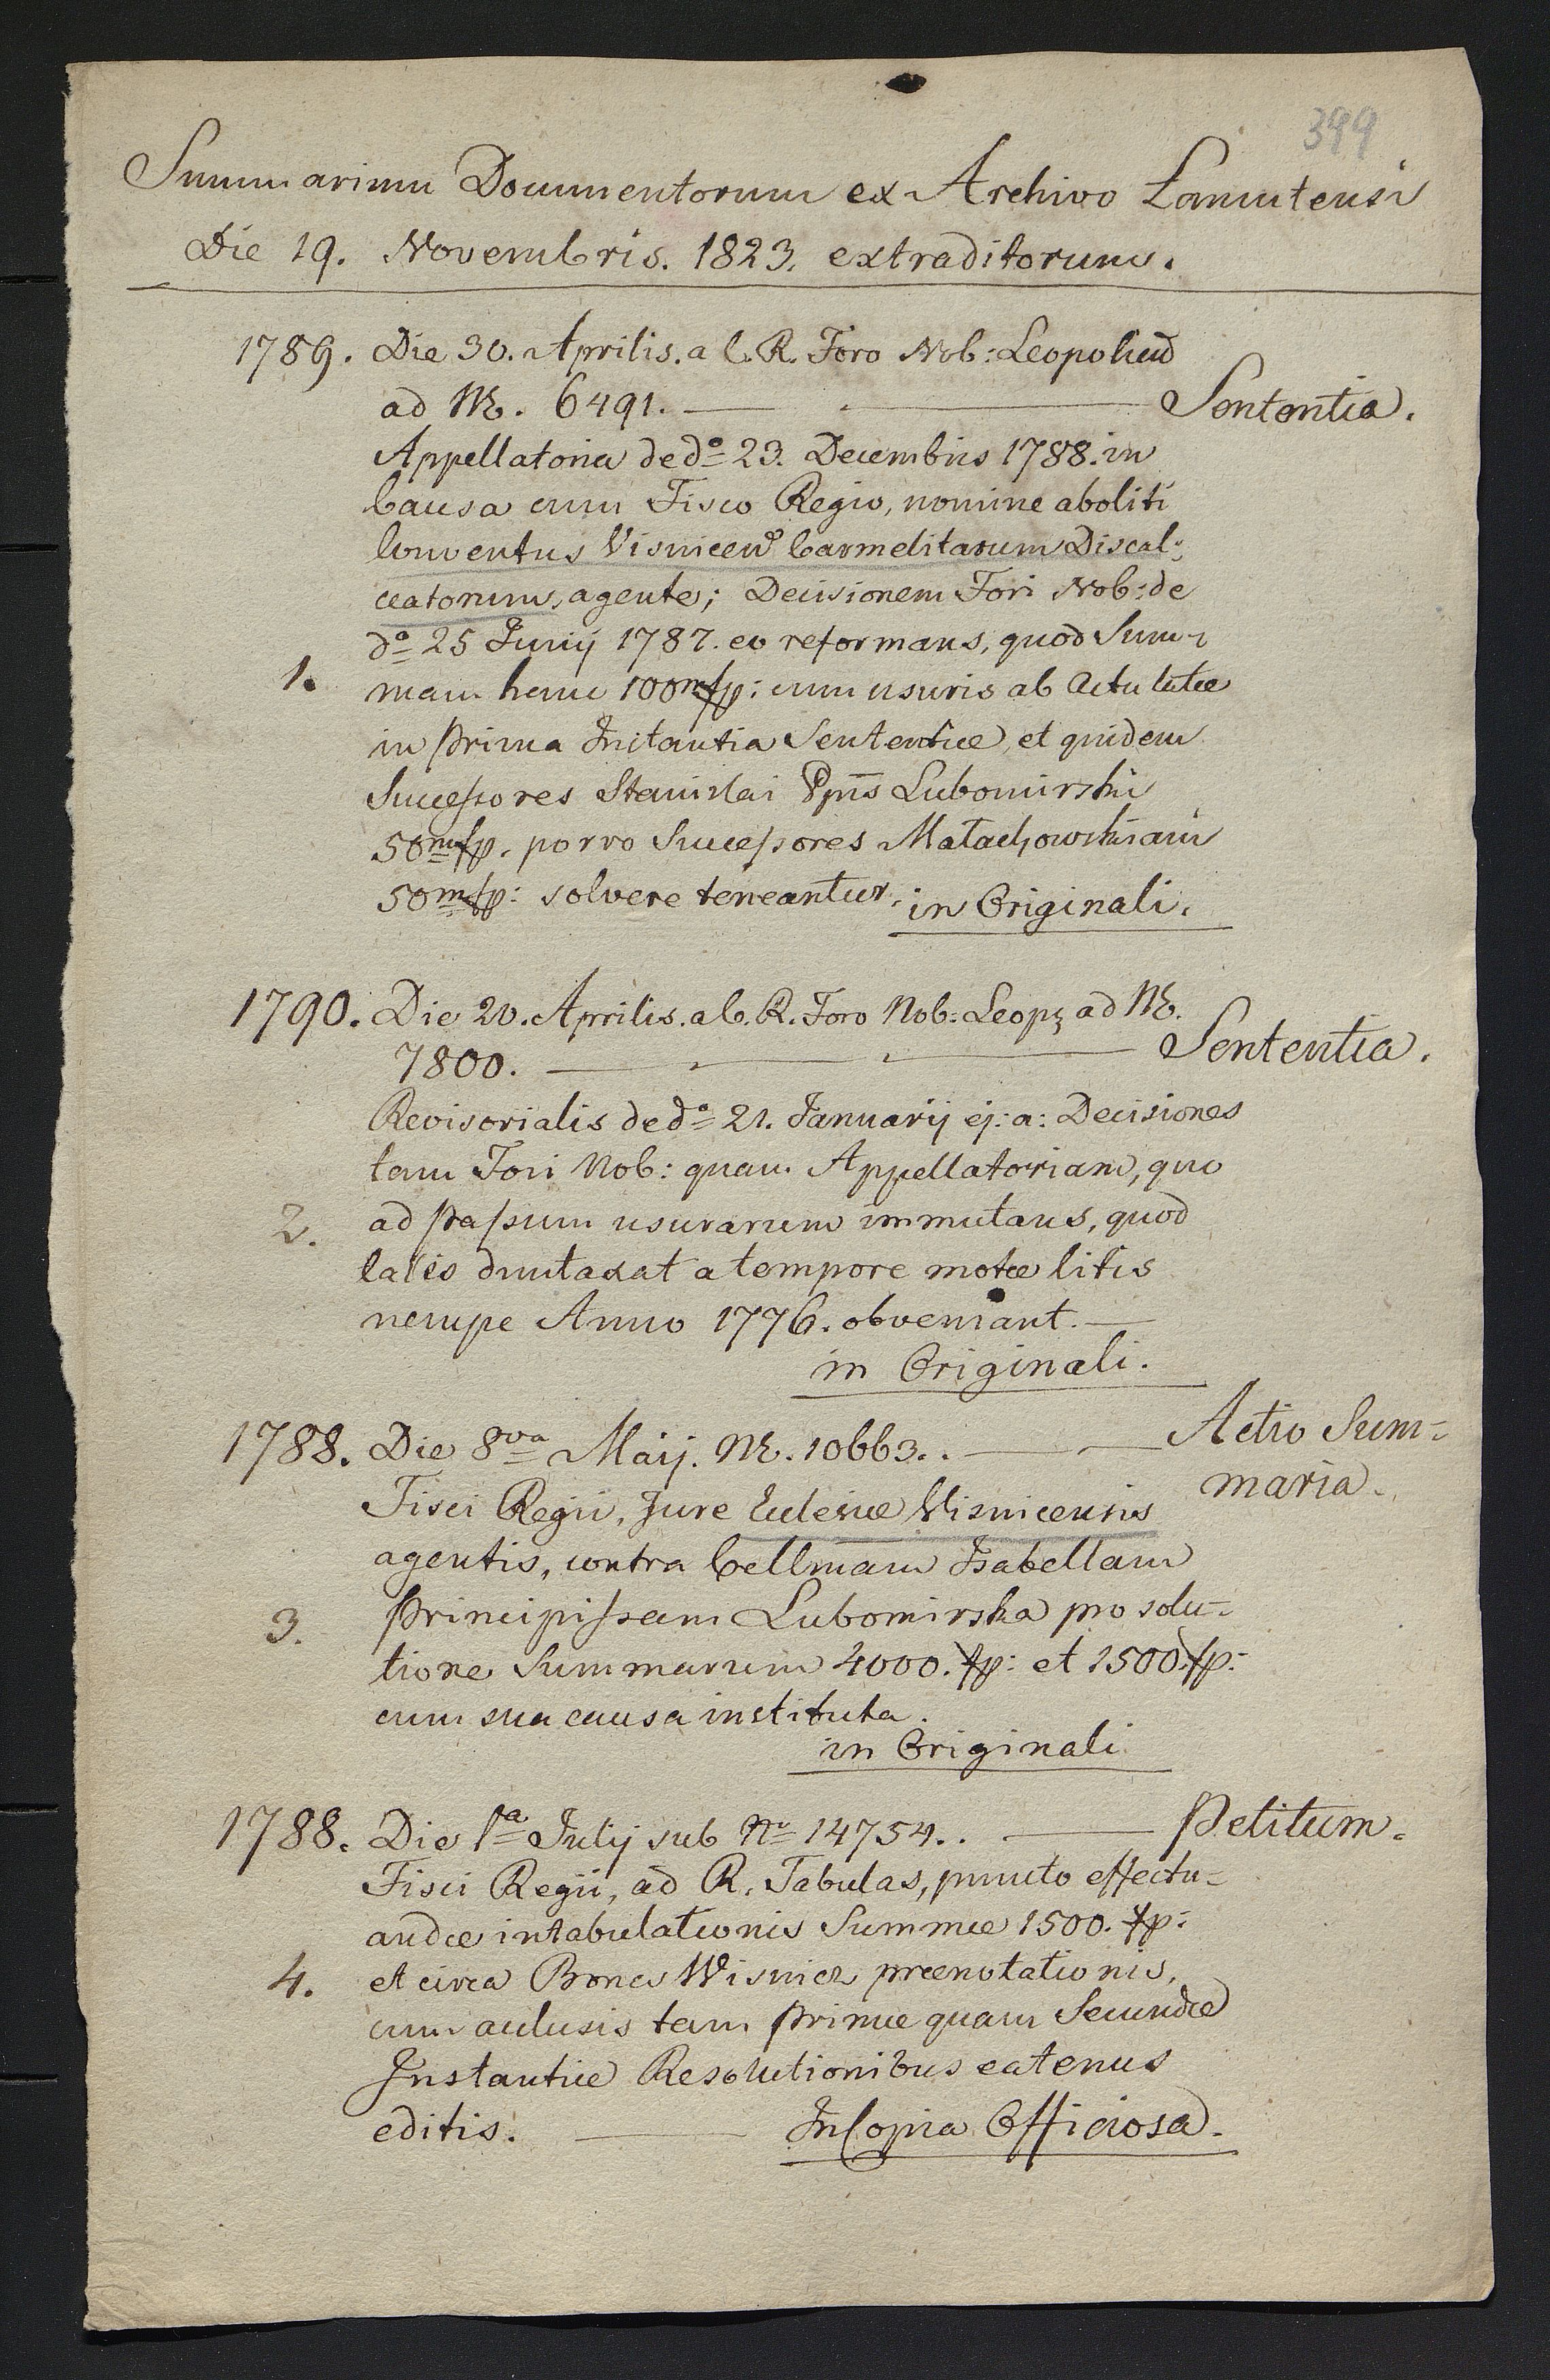 399
Summarium Documentorum ex Archivo Łancutensi
Die 19. Novembris. 1823. extraditorum.
1789. Die 30. Aprilis. a C. R. Foro Nob: Leopolien̄
ad Nr̄. 6491. — Sententia.
Appellatoria de dº 23. Decembris 1788. in
Causa cum Fisco Regio, nomine aboliti
Conventus Visnicen̄ Carmelitarum Discal-
ceatorum, agente; Decisionem Fori Nob: de
dº 25 Junij 1787. eo reformans, quod Sum-
1. mam hanc 100m fp: cum usuris ab Actu latæ
in prima Instantia Sententiæ, et quidem
Successores Stanislai Ppīs Lubomirski
50m fp. porro Successores Małachowskiani
50m fp: solvere teneantur. in Originali.
1790. Die 20. Aprilis. a C. R. Foro Nob: Leop; ad Nr̄.
7800. — Sententia.
Revisorialis de dº 21. Januarij ej: a: Decisiones
tam Fori Nob: quam Appellatoriam, quo
2. ad passum usurarum immutans, quod
tales duntaxat a tempore motæ litis
nempe Anno 1776. obveniant. —
in Originali.
1788. Die 8va Maij. Nr̄. 10663. . — Actio Sum-
maria.
Fisci Regii, Jure Eccleſiæ Visnicensis
agentis, contra Cellmam Isabellam
3. Principissam Lubomirska pro solu-
tione Summarum 4000. fp: et 1500. fp:
cum sua causa instituta.
in Originali
1788. Die 1ª Julij sub Nº 14754. . — Petitum.
Fisci Regii, ad R. Tabulas, puncto effectu-
andæ intabulationis Summæ 1500. fp:
4. et circa Bona Wisnicz prænotationis,
cum aclusis tam primæ quam Secundæ
Instantiæ Resolutionibus eatenus
editis. — In Copia Officiosa.